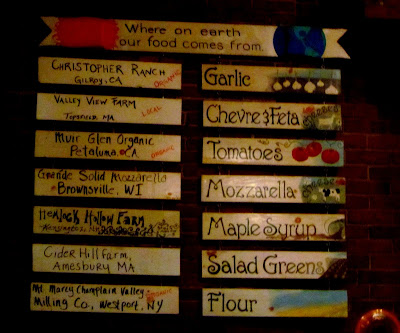 Where on earth
our food comes from.
CHRISTOPHER RANCH
GILROY, CA
ORGANIC
Garlic
VALLEY VIEW FARM
MA
LOCAL
Chevre & Feta
Muir Glen Organic
Petaluma, CA
ORGANIC
Tomatoes
Grande Solid Mozzarella
Brownsville, WI
Mozzarella
Hemlock Hollow Farm
Maple Syrup
Cider Hill farm,
Amesbury MA
Salad Greens
Mt. Marcy Champlain Valley
Milling Co., Westport, NY
ORGANIC
Flour